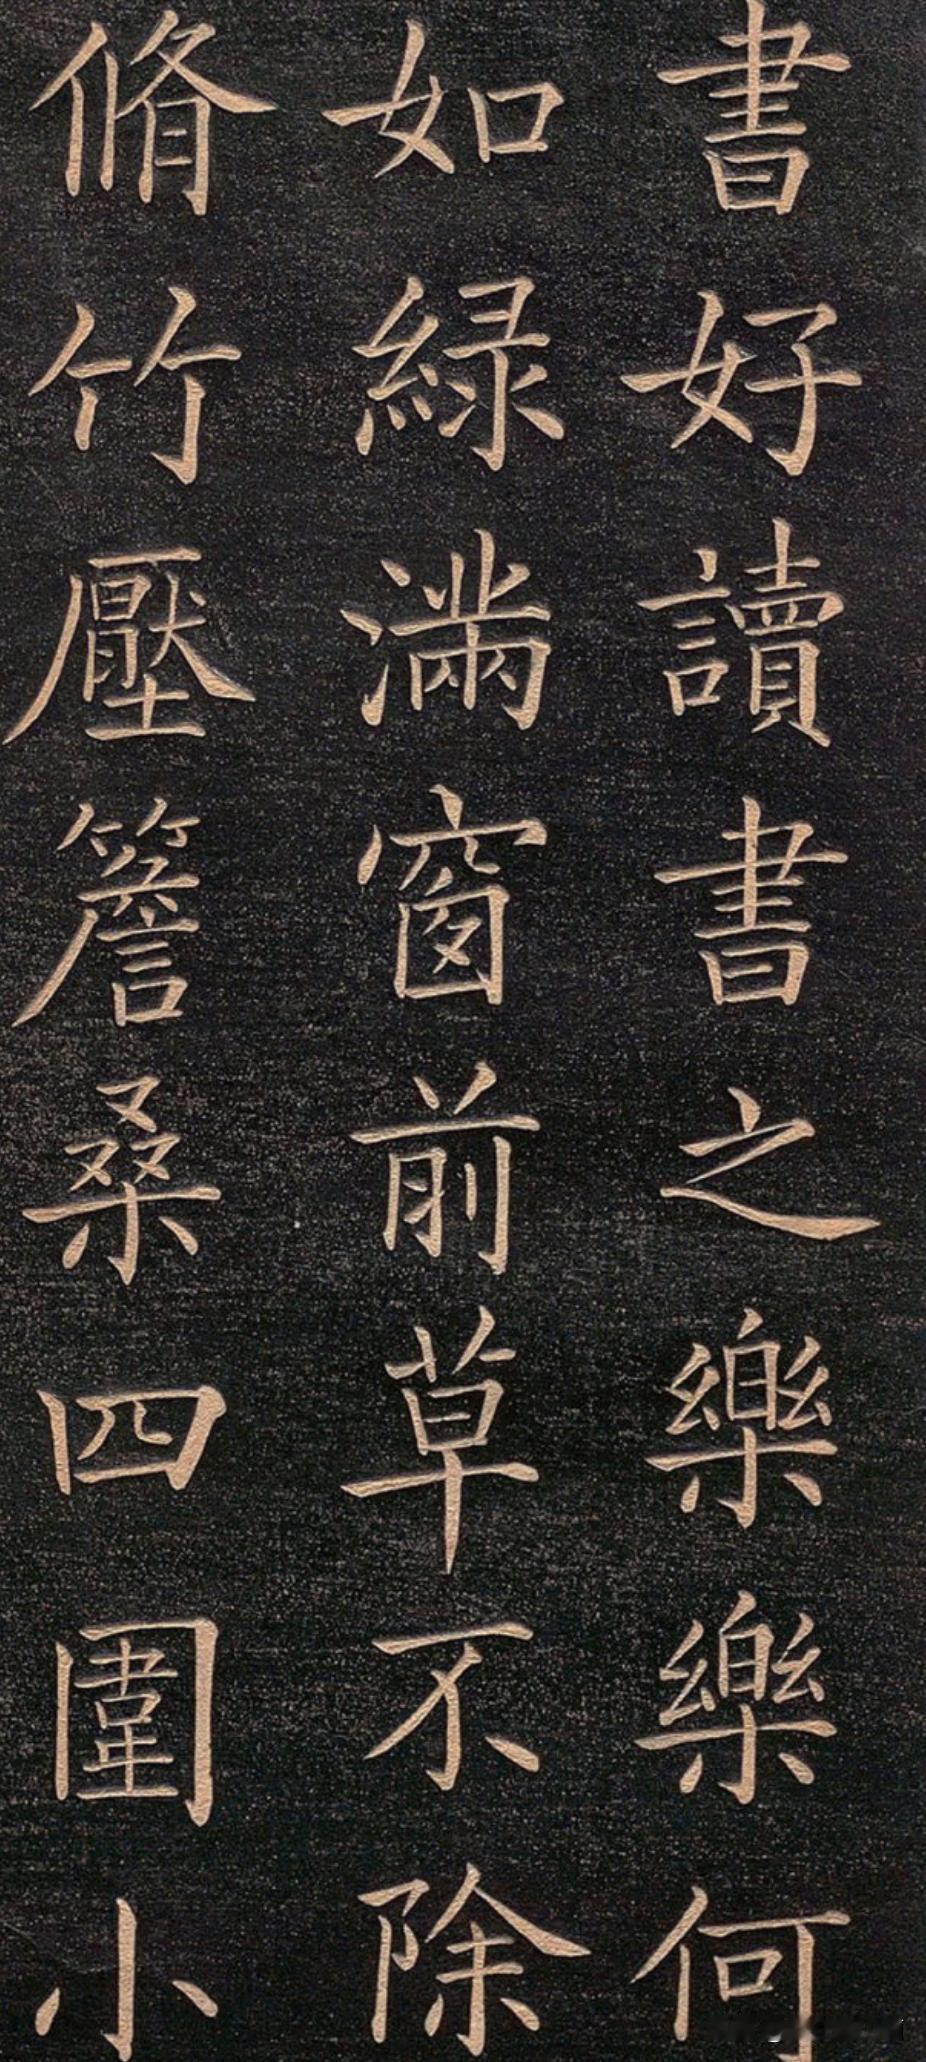 書好讀書之樂樂何
如綠滿窗前草不除
脩竹壓簷桑四圍小